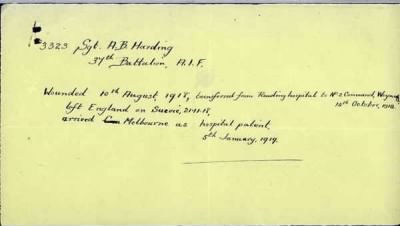 3323 Sgt. A.B Harding
37th Battalion, A.I.F.
Wounded 10th August, 1918, transferred from Reading hospital to No 2 Command,
14th October, 1918.
left England on Suevic, 21-11-18,
arrived Melbourne as hospital patient,
5th January, 1919.